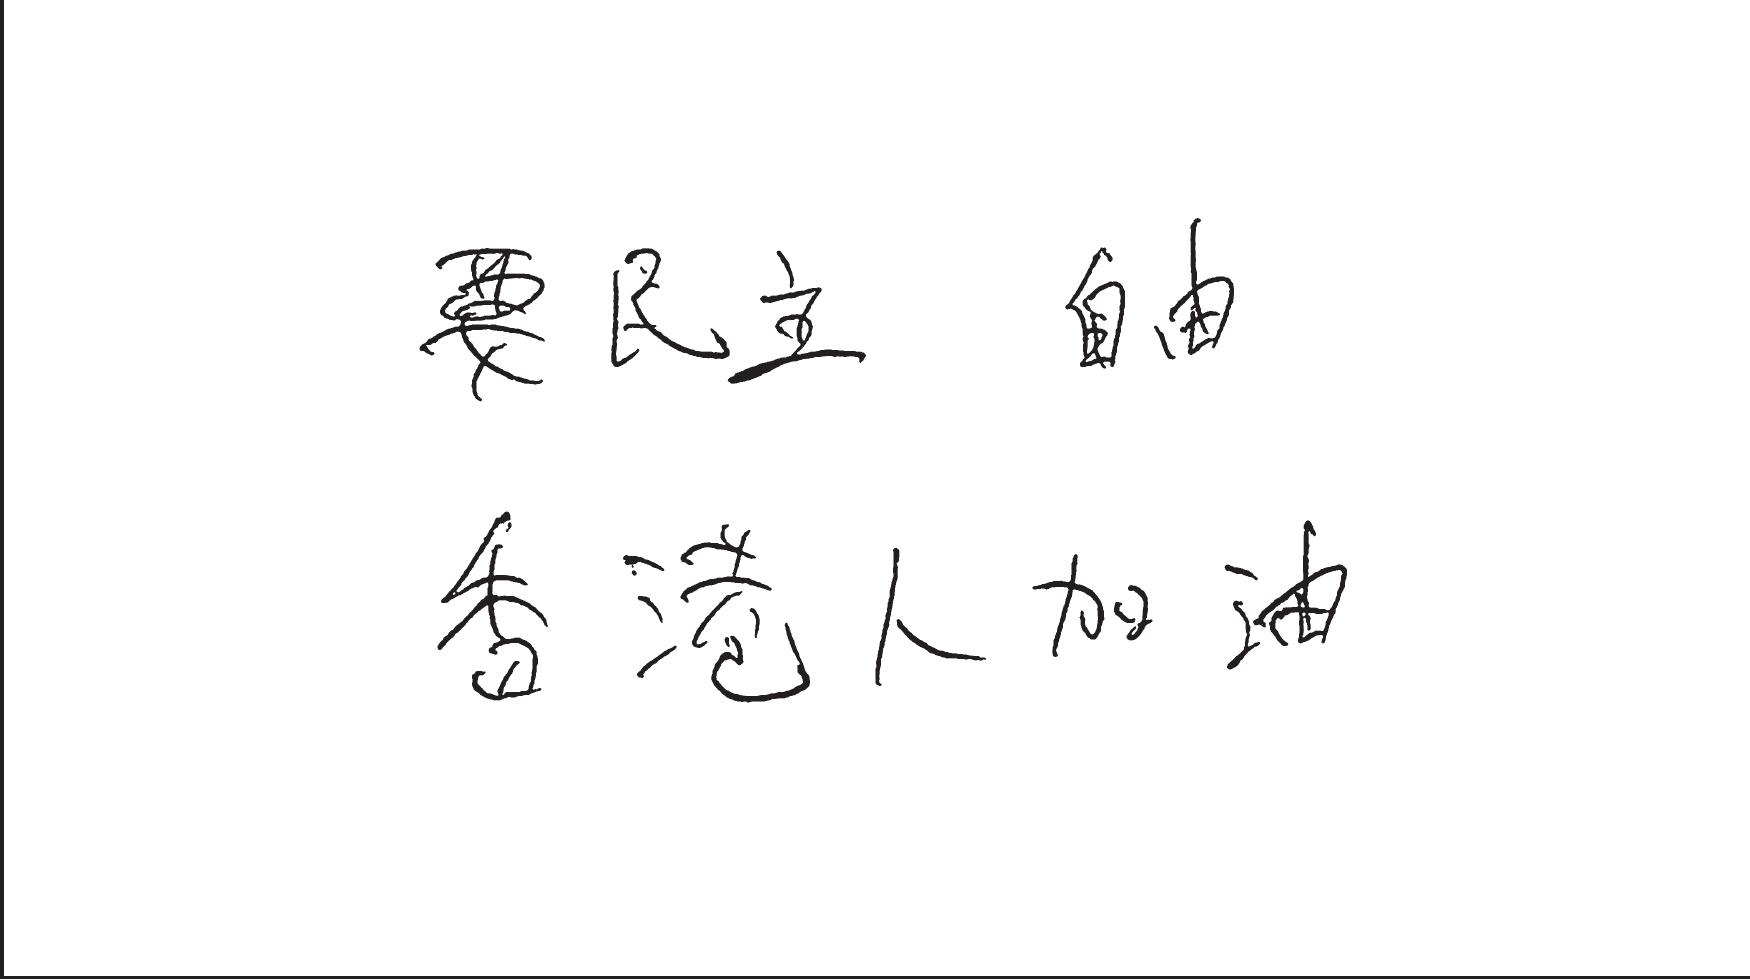 要民主 自由
香港人加油